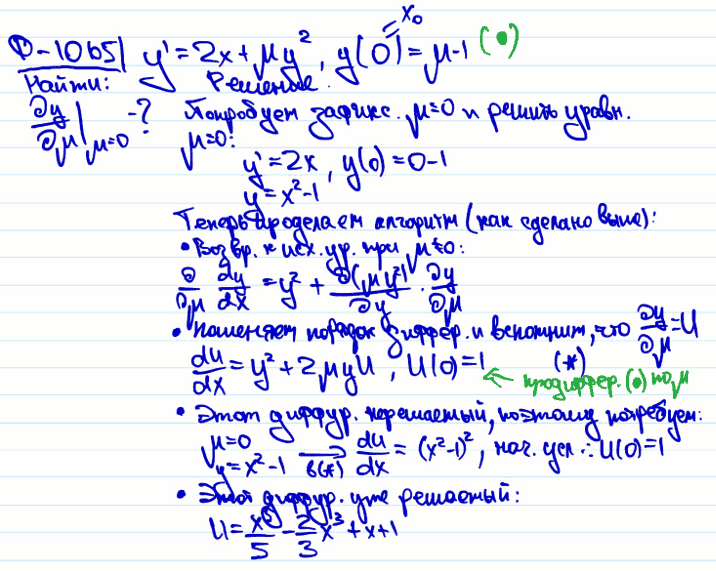 Ф-1065| y' = 2x + μy², y(0) = μ-1 (•)
= x₀
Найти: Решение.
∂y/∂μ|μ=0 -? Попробуем зафикс. μ=0 и решить уравн.
μ=0:
y' = 2x, y(0) = 0-1
y = x²-1
Теперь проделаем алгоритм (как сделано выше):
• Возвр. к исх. ур. при μ≠0:
∂/∂μ dy/dx = y² + ∂(μy²)/∂y · ∂y/∂μ
• Поменяем порядок диффер. и вспомним, что ∂y/∂μ = u
du/dx = y² + 2μyu, u(0) = 1 (*)
← продиффер. (•) по μ
• Этот диффур. нерешаемый, поэтому потребуем:
μ=0
y = x²-1 ⟶ в(*) du/dx = (x²-1)², нач. усл.: u(0)=1
• Этот диффур. уже решаемый:
u = x⁵/5 - 2/3 x³ + x + 1